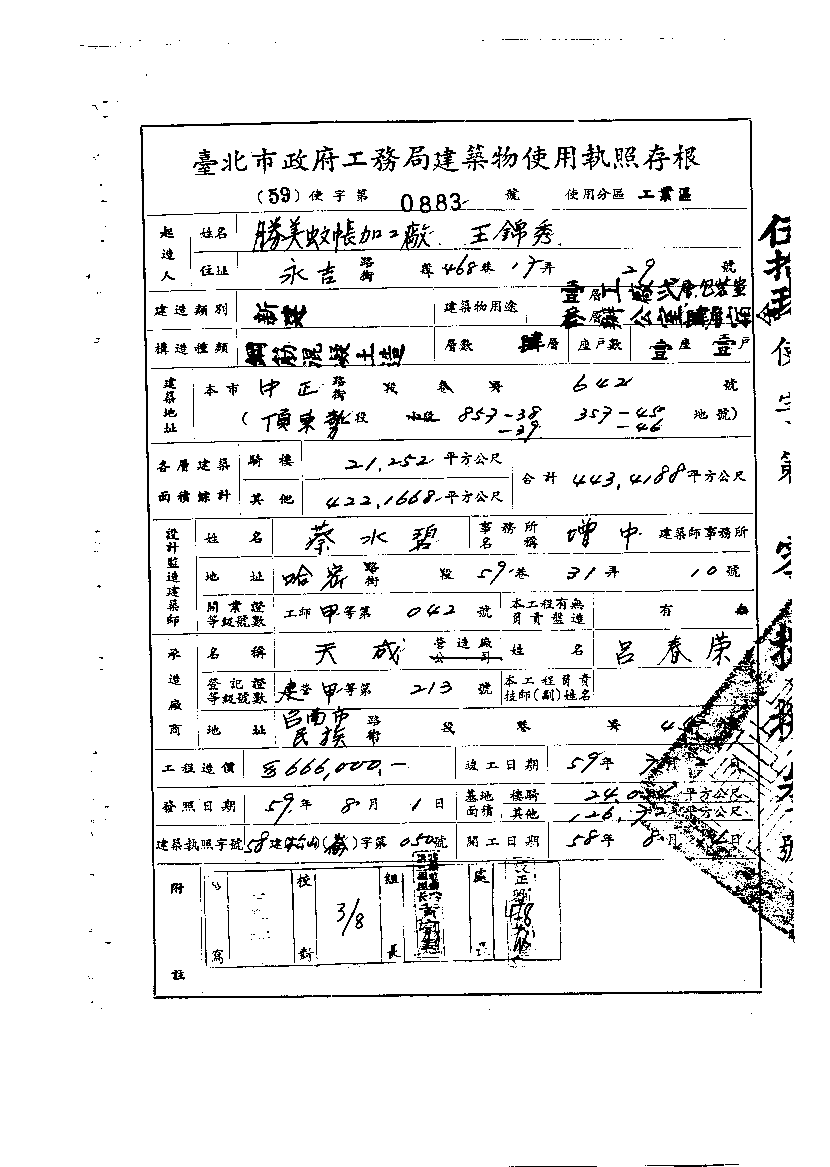 臺北市政府工務局建築物使用執照存根
(59)使字第 0883 號 使用分區 工業區
起造人 姓名 勝美蚊帳加工廠 王錦秀
住址 永吉 路街 巷468巷 17弄 29 號
建造類別 新建 建築物用途 壹層工廠 貳層包裝室 叁層辦公室 肆層宿舍
構造種類 鋼筋混凝土造 層數 肆層 座戶數 壹座 壹戶
建築地址 本市 中正 路街 段 巷 弄 642 號
(頂東勢段 小段 857-38 357-45 地號)
-39 -46
各層建築面積總計 騎樓 21,252 平方公尺 合計 443,4188平方公尺
其他 422,1668平方公尺
設計監造建築師 姓名 蔡水碧 事務所名稱 增中 建築師事務所
地址 哈密 路街 段 59巷 31弄 10號
開業證等級號數 工師甲等第 042 號 本工程有無負責監造 有
承造廠商 名稱 天成 營造廠公司 姓名 呂春榮
登記證等級號數 建營甲等第 213 號 本工程負責技師(副)姓名
地址 台南市民族 路街 段 巷 弄
工程造價 666,000.- 竣工日期 59年 月 日
發照日期 59年 8月 1日 基地面積 樓騎 平方公尺
其他 平方公尺
建築執照字號 58建 字第050號 開工日期 58年 8月 日
附註 校對 3/8 組長 處
使字第 號